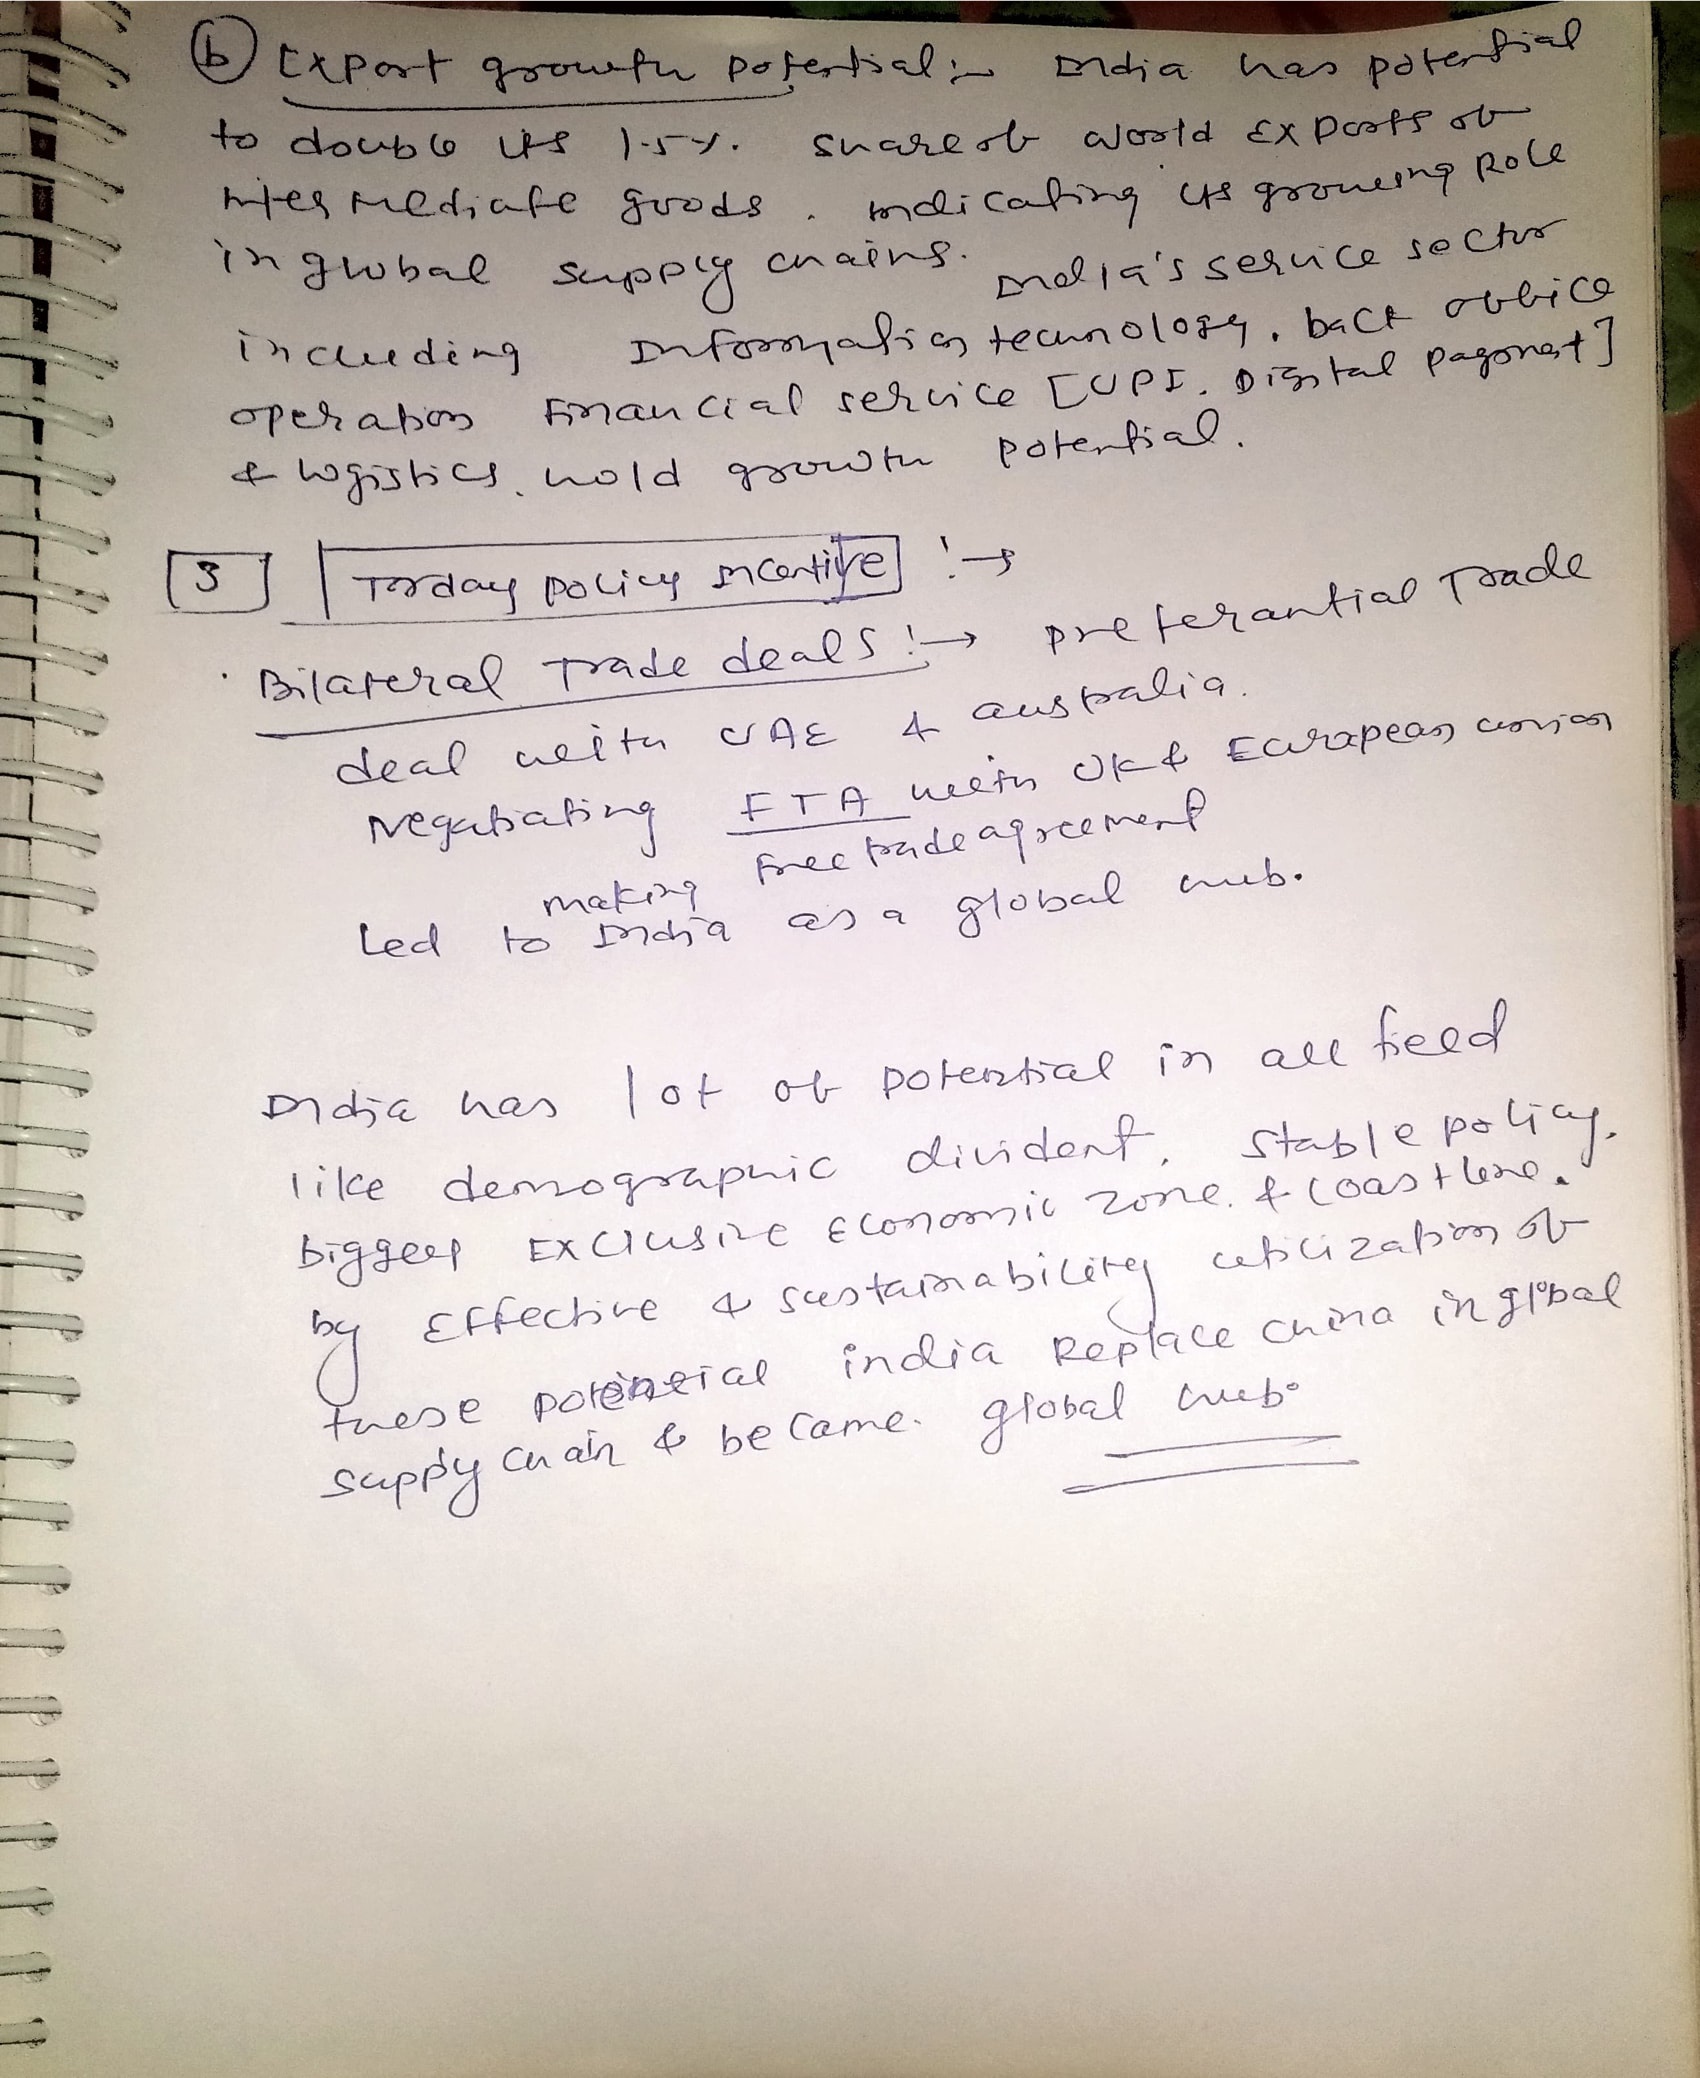 (b) Export growth potential :- India has potential
to double its 1.5%. share of world Exports of
intermediate goods. indicating its growing Role
in global supply chains. India's service sector
including Information technology, back office
operation Financial service [UPI, Digital Payment]
& logistics, hold growth potential.
[3] Tarday policy Incentive :→
. Bilateral Trade deals :→ preferantial Trade
deal with UAE & australia.
Negatiating FTA with UK & Eurapean union
Free trade agreement
making
Led to India as a global hub.
India has lot of potential in all field
like demographic divident, stable policy,
biggest Exclusive Economic zone. & coastline.
by Effective & sustainability utilization of
these potential india Replace china in global
supply chain & became. global hub.